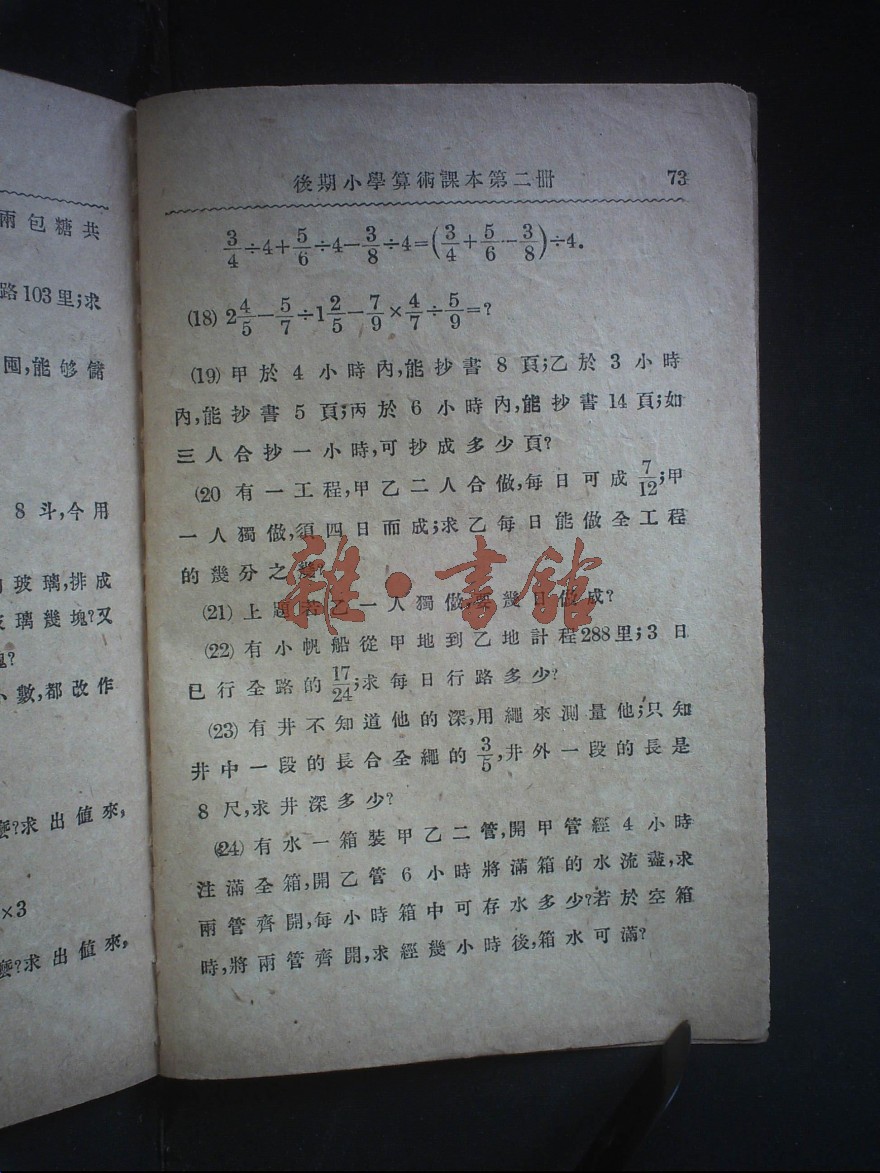 兩包糖共
路103里;求
囤,能够儲
8斗,今用
玻璃,排成
璃幾塊?又
數,都改作
求出值來,
×3
求出值來,
後期小學算術課本第二冊 73
3/4÷4+5/6÷4-3/8÷4=(3/4+5/6-3/8)÷4.
(18) 2 4/5-5/7÷1 2/5-7/9×4/7÷5/9=?
(19) 甲於4小時內,能抄書8頁;乙於3小時
內,能抄書5頁;丙於6小時內,能抄書14頁;如
三人合抄一小時,可抄成多少頁?
(20 有一工程,甲乙二人合做,每日可成7/12;甲
一人獨做,須四日而成;求乙每日能做全工程
的幾分之幾?
(21) 上題若乙一人獨做,要幾日做成?
(22) 有小帆船從甲地到乙地計程288里;3日
已行全路的17/24;求每日行路多少?
(23) 有井不知道他的深,用繩來測量他;只知
井中一段的長合全繩的3/5,井外一段的長是
8尺,求井深多少?
(24) 有水一箱裝甲乙二管,開甲管經4小時
注滿全箱,開乙管6小時將滿箱的水流盡,求
兩管齊開,每小時箱中可存水多少?若於空箱
時,將兩管齊開,求經幾小時後,箱水可滿?
雜·書館